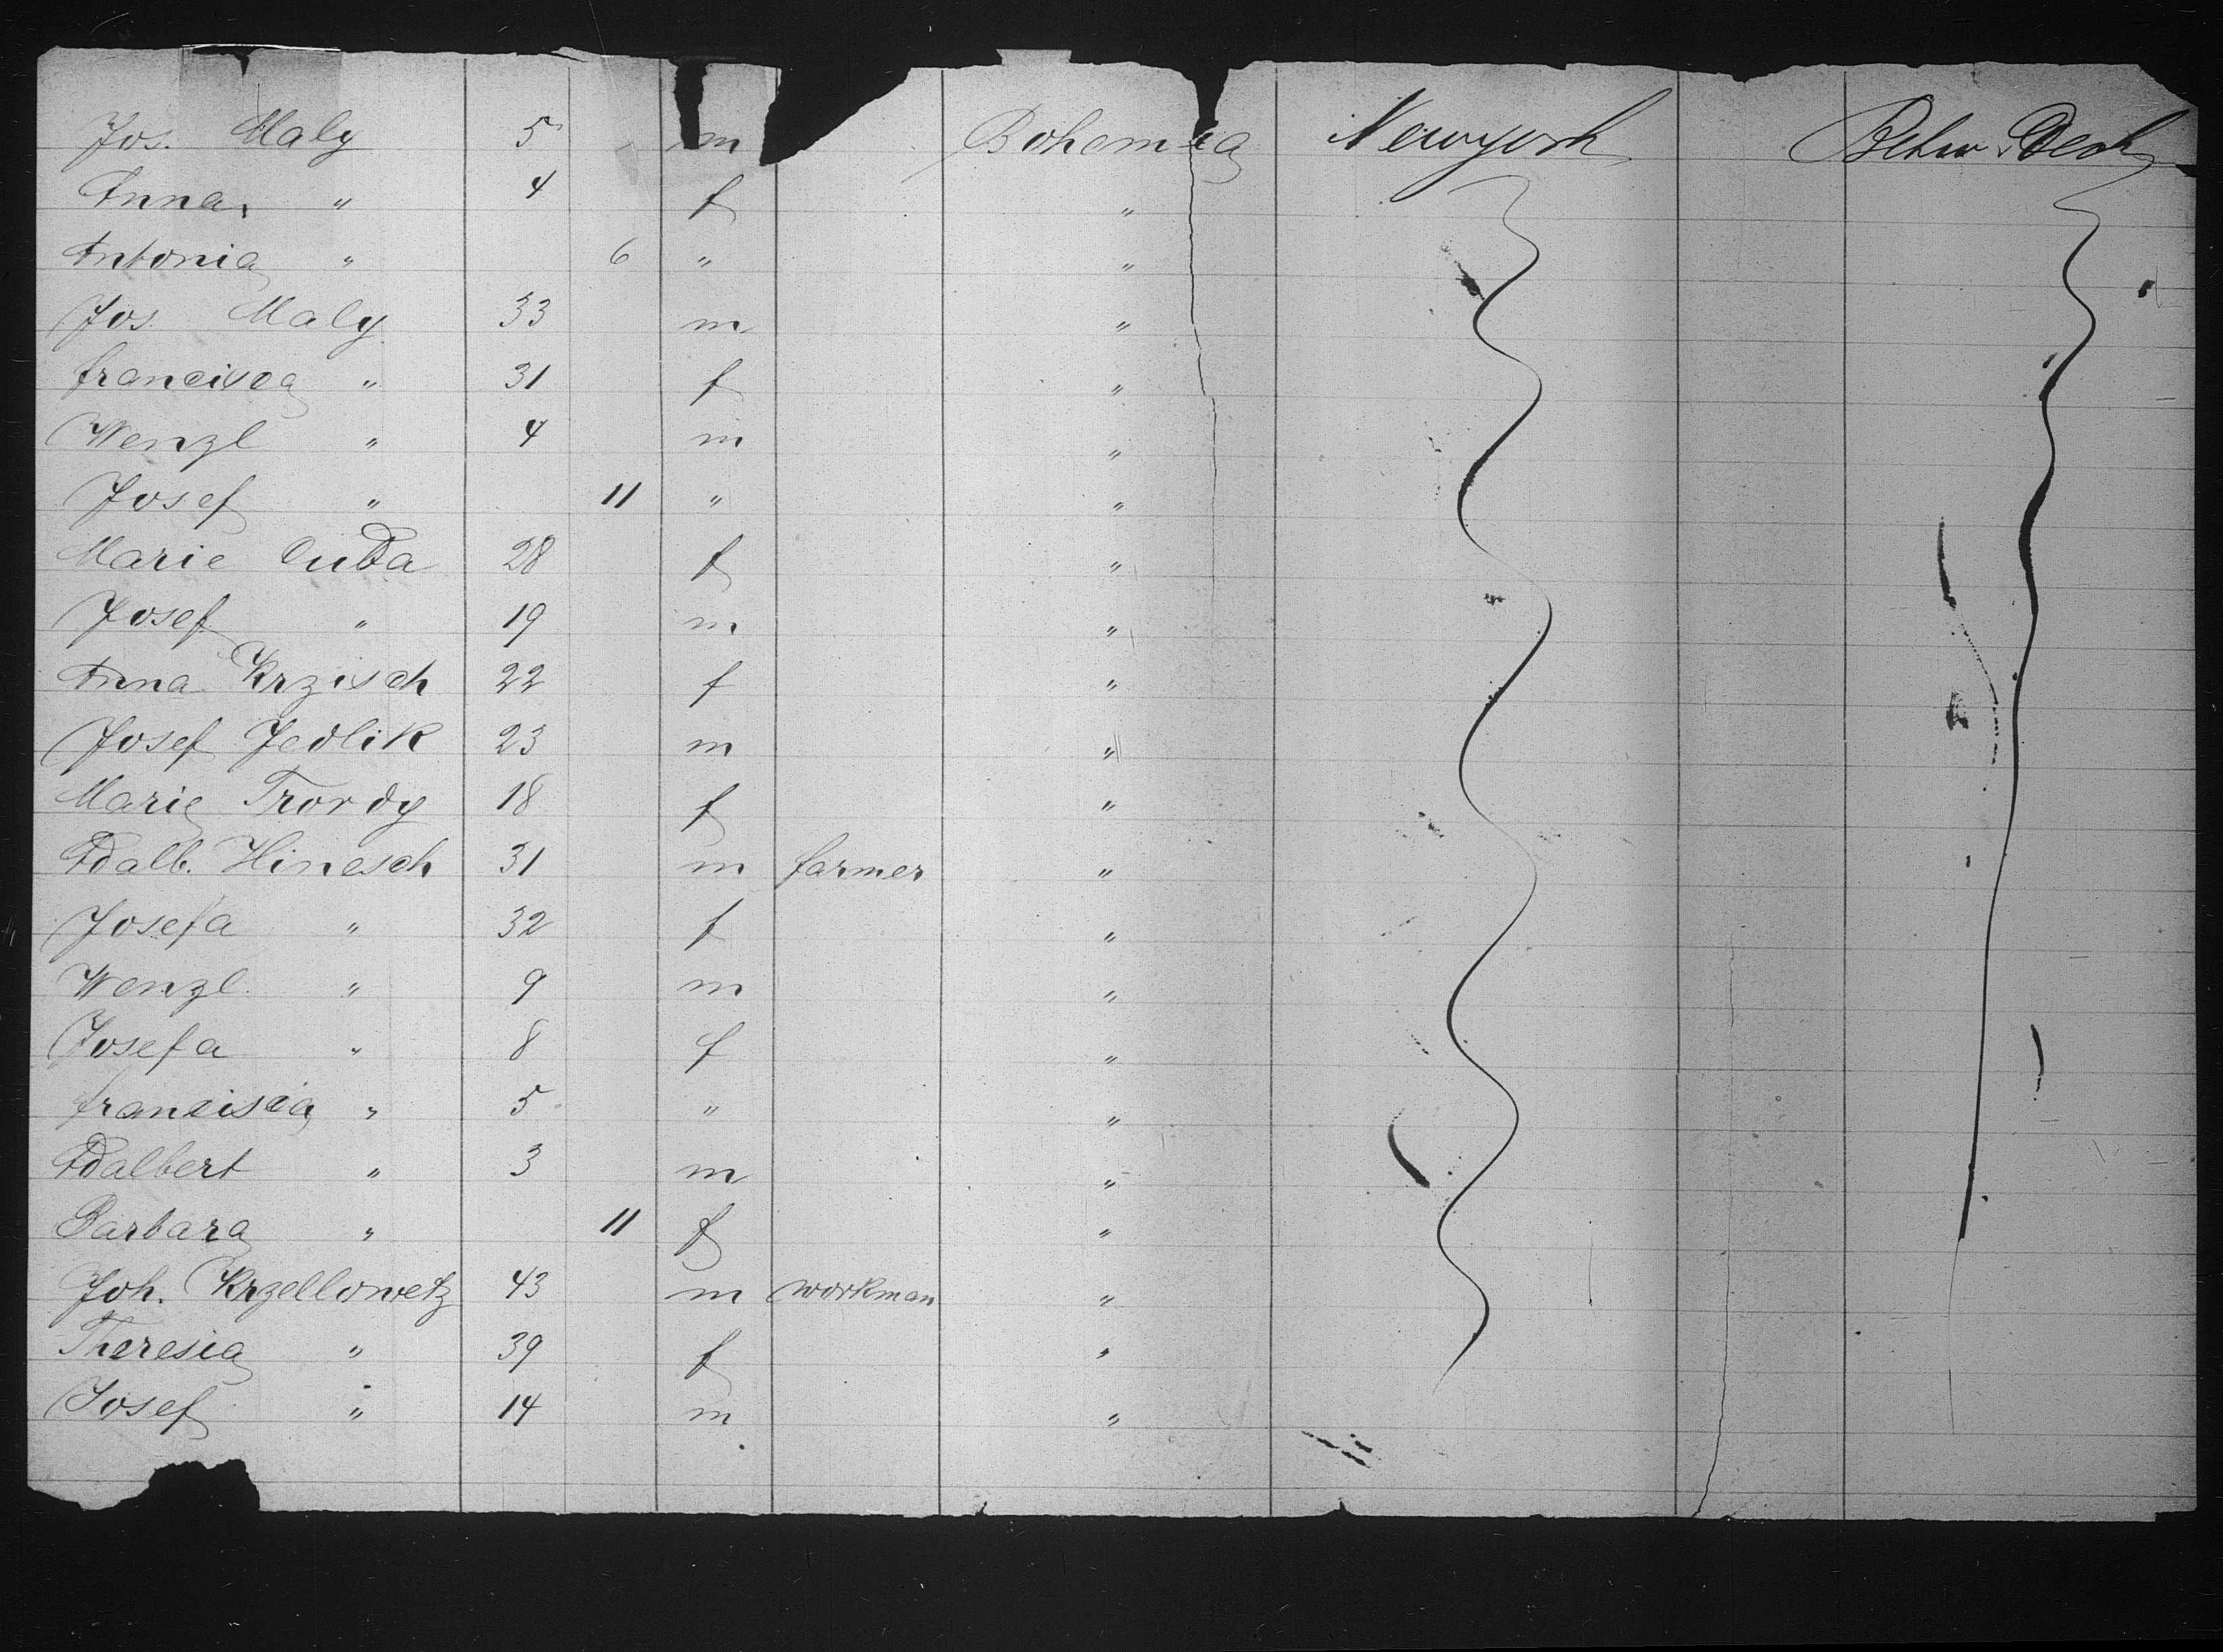 Jos. Maly 5 m Bohemia Newyork Betw. Deck
Anna " 4 f "
Antonia " 6 " "
Jos. Maly 33 m "
francisca " 31 f "
Wenzl " 4 m "
Josef " 11 " "
Marie Cuda 28 f "
Josef " 19 m "
Anna Krzisch 22 f "
Josef Jedlik 23 m "
Marie Trordy 18 f "
Adalb. Hinesch 31 m farmer "
Josefa " 32 f "
Wenzl " 9 m "
Josefa " 8 f "
francisca " 5 " "
Adalbert " 3 m "
Barbara " 11 f "
Joh. Krzellowetz 43 m workman "
Theresia " 39 f "
Josef " 14 m "